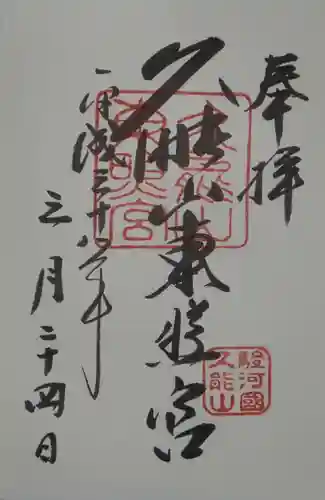 奉拝
久能山東照宮
平成三十年
三月二十四日
東照宮
駿河國
久能山